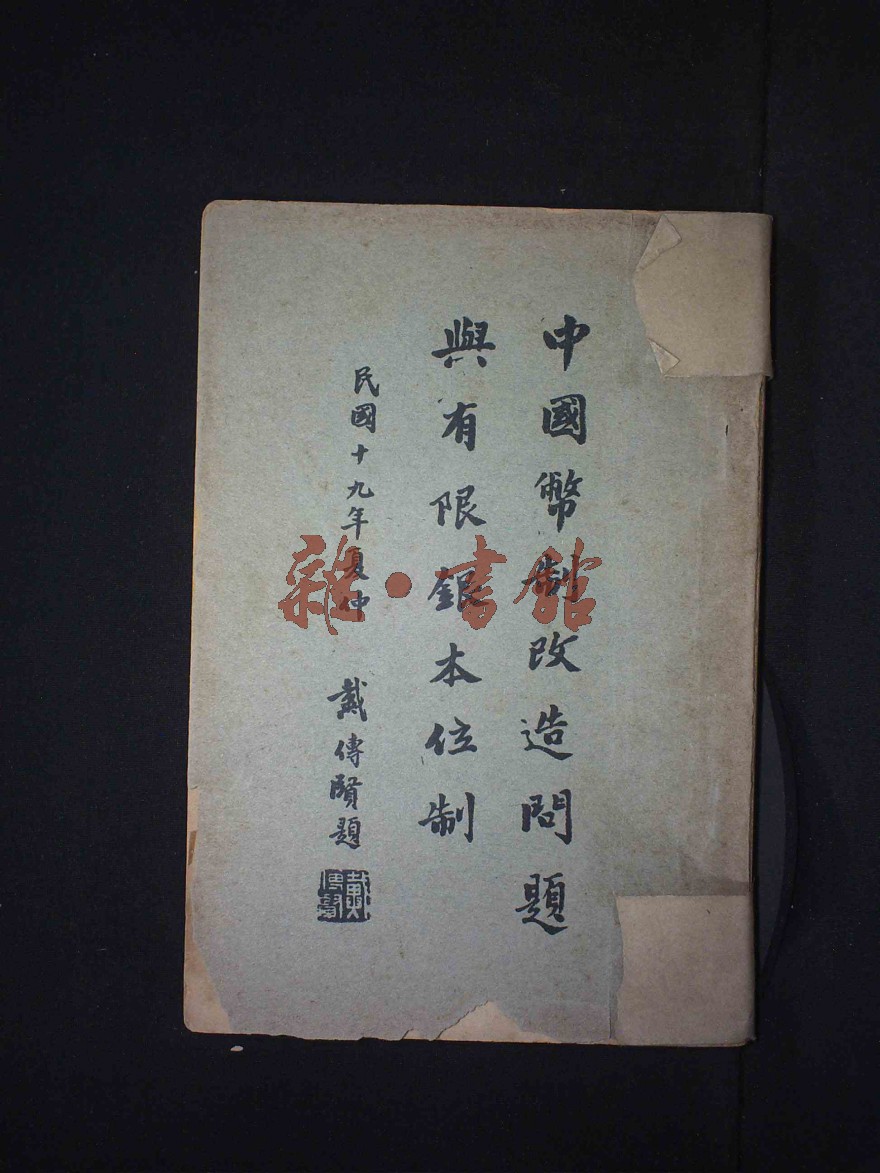 中國幣制改造問題
與有限銀本位制
民國十九年夏仲
戴傳賢題
雜·書館